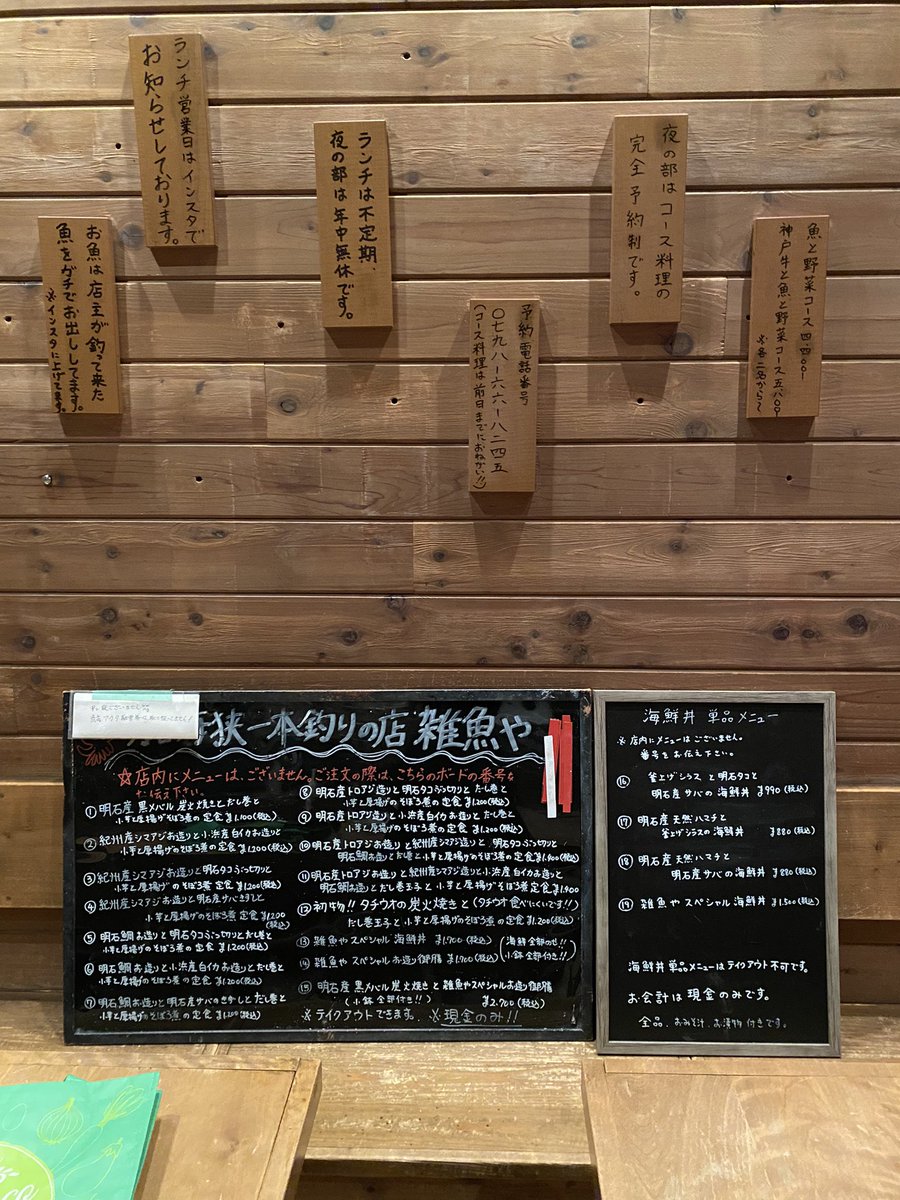 魚と野菜コース四.四〇〇ー
神戸牛と魚と野菜コース五.八〇〇ー
※各二名から〜
夜の部はコース料理の
完全予約制です。
予約電話番号
〇七九八ー六六ー八二四五
(コース料理は前日までにおねがい!!)
ランチは不定期、
夜の部は年中無休です。
ランチ営業日はインスタで
お知らせしております。
お魚は店主が釣って来た
魚をガチでお出ししてます。
※インスタに上げてます。
狭一本釣りの店 雑魚や
☆店内にメニューは、ございません。ご注文の際は、こちらのボードの番号を
お伝え下さい。
①明石産 黒メバル 炭火焼きと だし巻と
小芋と厚揚げのそぼろ煮の定食 ¥1.100(税込)
②紀州産シマアジお造りと小浜産白イカお造りと
小芋と厚揚げのそぼろ煮の定食 ¥1.200(税込)
③紀州産シマアジお造りと明石タコぶつ切りと
小芋と厚揚げのそぼろ煮 定食 ¥1.200(税込)
④紀州産シマアジお造りと明石産サバきずしと
小芋と厚揚げのそぼろ煮の定食 ¥1.200
(税込)
⑤明石鯛お造りと明石タコぶつ切りとだし巻と
小芋と厚揚げのそぼろ煮の定食 ¥1.200(税込)
⑥明石鯛お造りと小浜産白イカお造りとだし巻と
小芋と厚揚げのそぼろ煮の定食 ¥1.200(税込)
⑦明石鯛お造りと明石産サバのきずしとだし巻と
小芋と厚揚げのそぼろ煮の定食 ¥1.200(税込)
⑧明石産トロアジお造りと明石タコぶつ切りと だし巻と
小芋と厚揚げのそぼろ煮の定食 ¥1.200(税込)
⑨明石産トロアジお造りと小浜産白イカお造りと だし巻と
小芋と厚揚げのそぼろ煮の定食 ¥1.200(税込)
⑩明石産トロアジお造りと 紀州産シマアジお造りと 明石タコぶつ切りと
明石鯛お造りとだし巻と小芋と厚揚げのそぼろ煮の定食 ¥1.900(税込)
⑪明石産トロアジお造りと 紀州産シマアジお造りと 小浜産白イカお造りと
明石鯛お造りと だし巻玉子と 小芋と厚揚げそぼろ煮の定食 ¥1.900
⑫初物!! タチウオの炭火焼きと(タチウオ食べにくいです!!)
だし巻玉子と小芋と厚揚げのそぼろ煮の定食 ¥1.200(税込)
⑬雑魚や スペシャル 海鮮丼 ¥1.900(税込)
(海鮮全部のせ!!
小鉢全部付き!!)
⑭雑魚や スペシャルお造り御膳 ¥1.900(税込)
⑮明石産 黒メバル炭火焼きと 雑魚やスペシャルお造り御膳
(小鉢 全部付き!!) ¥2.700(税込)
※テイクアウトできます. ※現金のみ!!
海鮮丼 単品メニュー
※店内にメニューはございません。
番号をお伝え下さい。
⑯釜上げシラスと明石タコと
明石産サバの海鮮丼 ¥990(税込)
⑰明石産 天然ハマチと
釜上げシラスの海鮮丼 ¥880(税込)
⑱明石産 天然ハマチと
明石産サバの海鮮丼 ¥880(税込)
⑲雑魚や スペシャル 海鮮丼 ¥1.500(税込)
海鮮丼 単品メニューはテイクアウト不可です。
お会計は 現金のみです。
全品、おみそ汁、お漬物付きです。